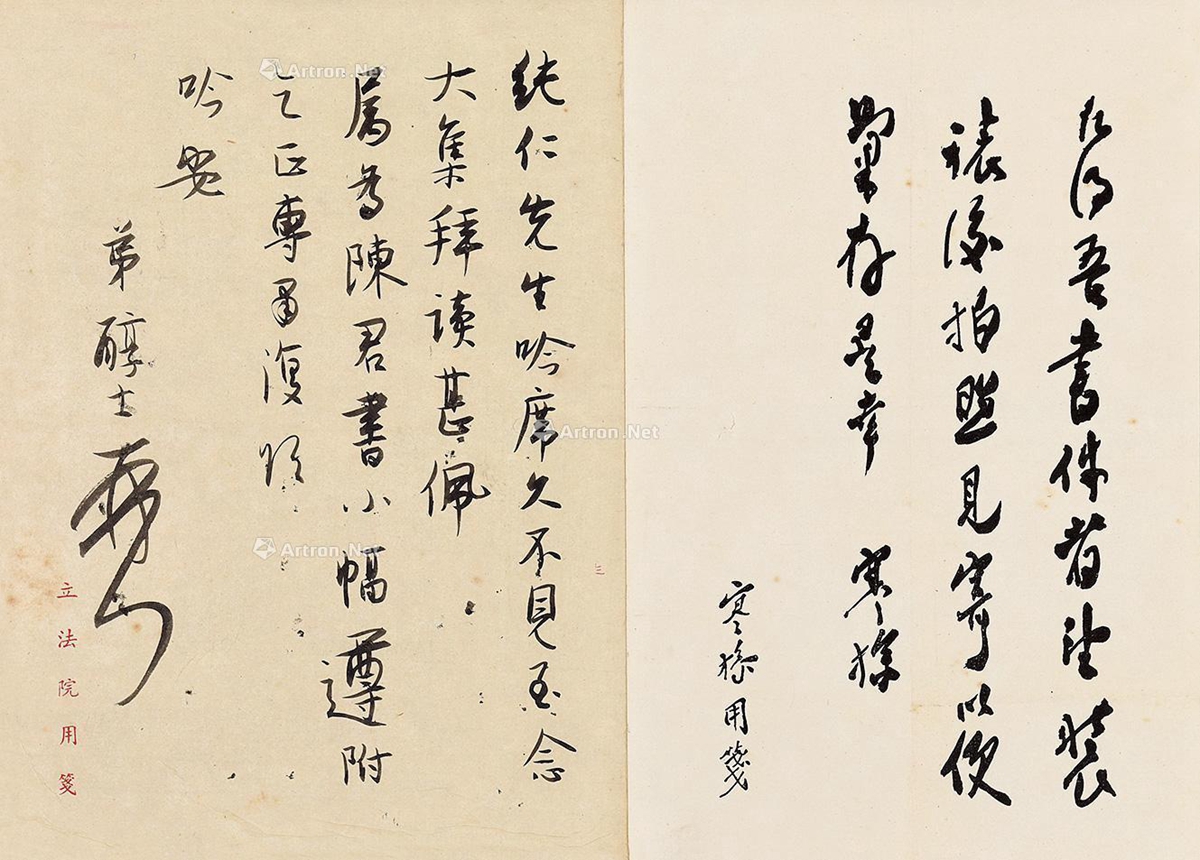 凡得吾書件者望裝
裱後拍照見寄以便
存是幸 寒操
寒操用箋
純仁先生吟席久不見至念
大集拜讀甚佩
屬為陳君書小幅遵附
乞正專肅復頌
吟安
弟醇士頓首
立法院用箋
三
Artron.Net
Artron.Net
Artron.Net